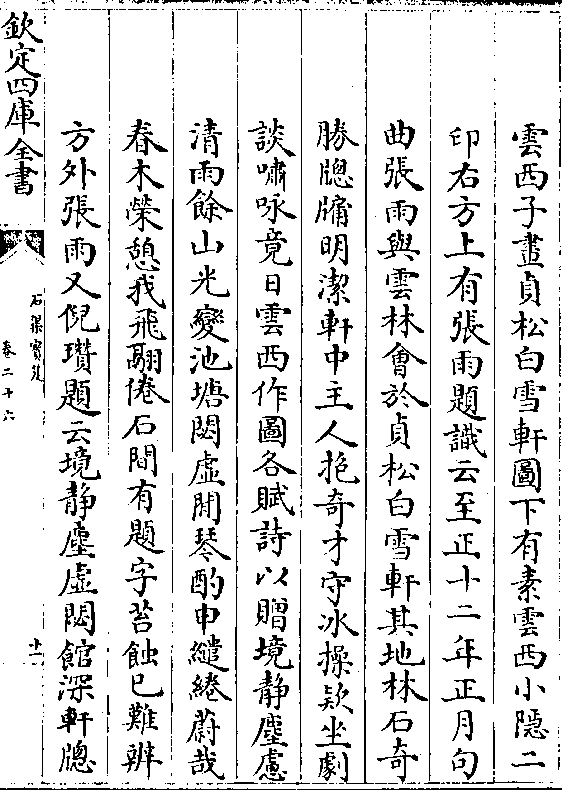 雲西子畫貞松白雪軒圖下有素雲西小隱二
印右方上有張雨題識云至正十二年正月句
曲張雨與雲林會於貞松白雪軒其地林石奇
勝牎牗明潔軒中主人抱奇才守氷操欵坐劇
談嘯咏竟日雲西作圖各賦詩以贈境静塵慮
清雨餘山光變池塘閟虚閒琴酌申繾綣蔚哉
春木榮憩我飛翮倦石間有題字苔蝕已難辨
方外張雨又倪瓚題云境静塵虚閟館深軒牎
欽定四庫全書
石渠寳笈
卷二十六
十一